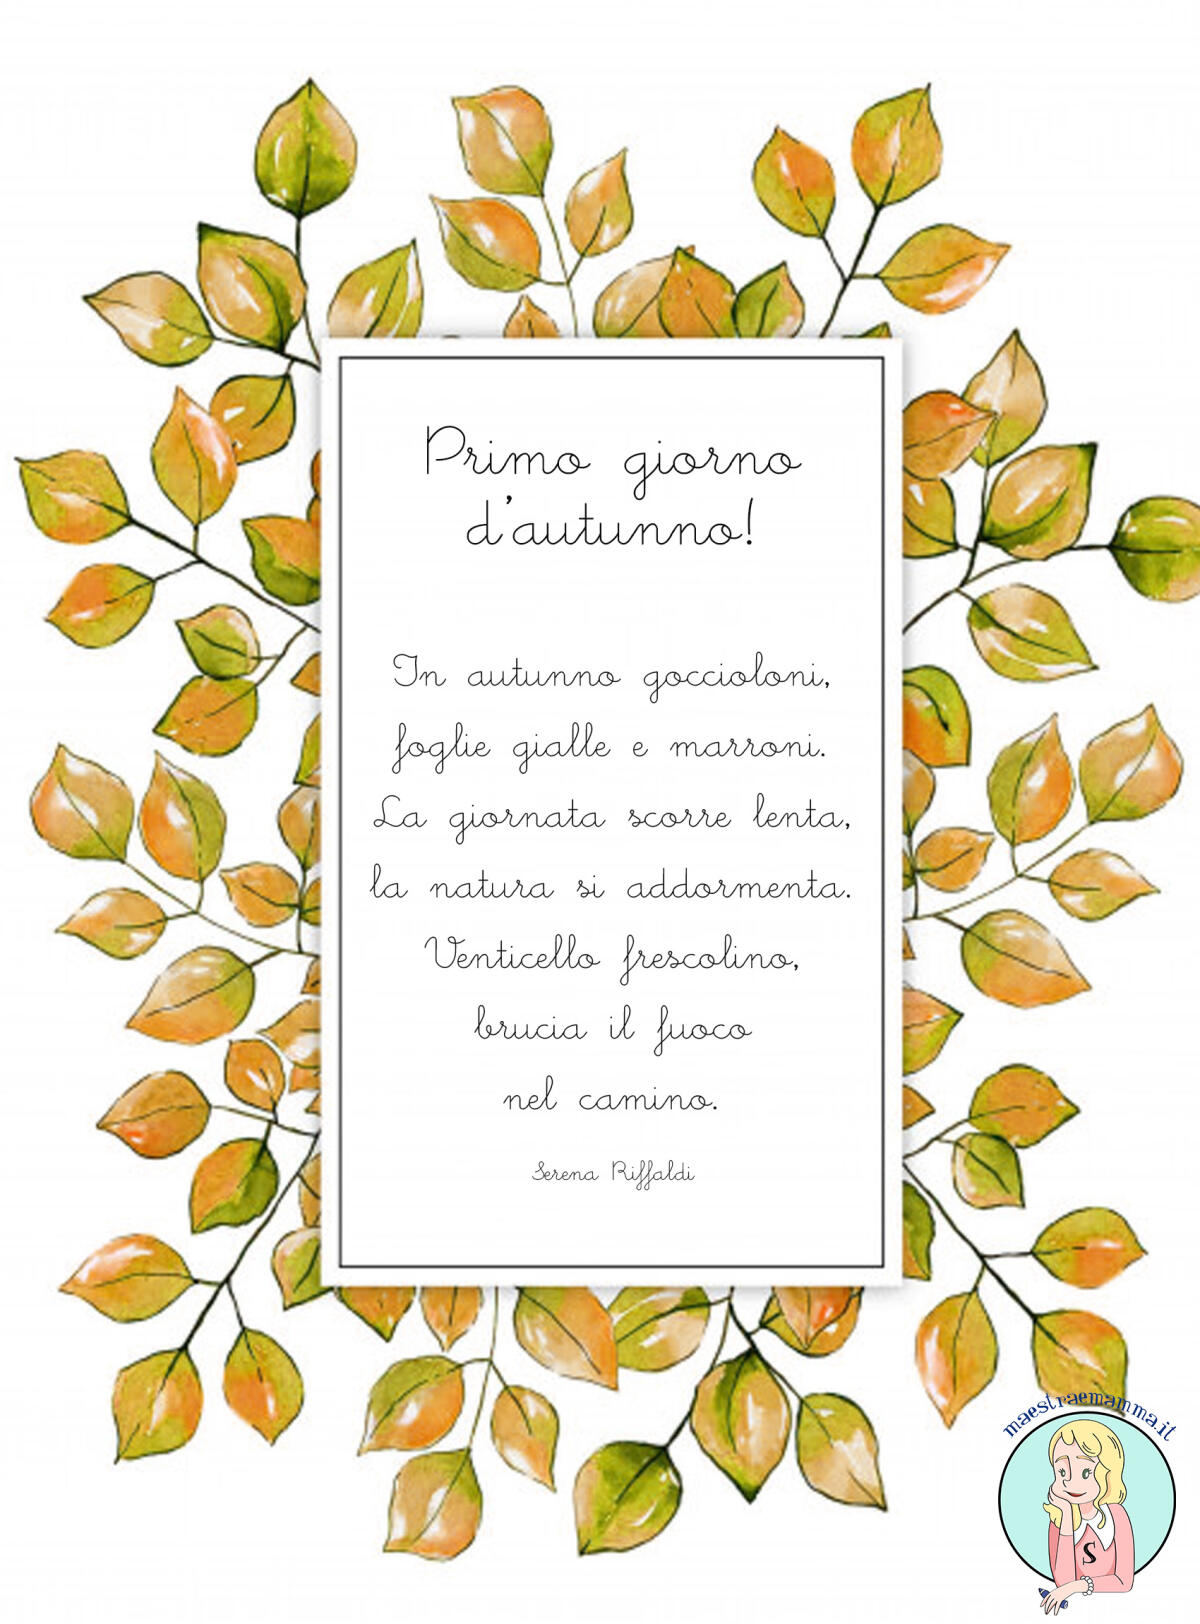 Primo giorno
d'autunno!
In autunno goccioloni,
foglie gialle e marroni.
La giornata scorre lenta,
la natura si addormenta.
Venticello frescolino,
brucia il fuoco
nel camino.
Serena Riffaldi
maestraemamma.it
S